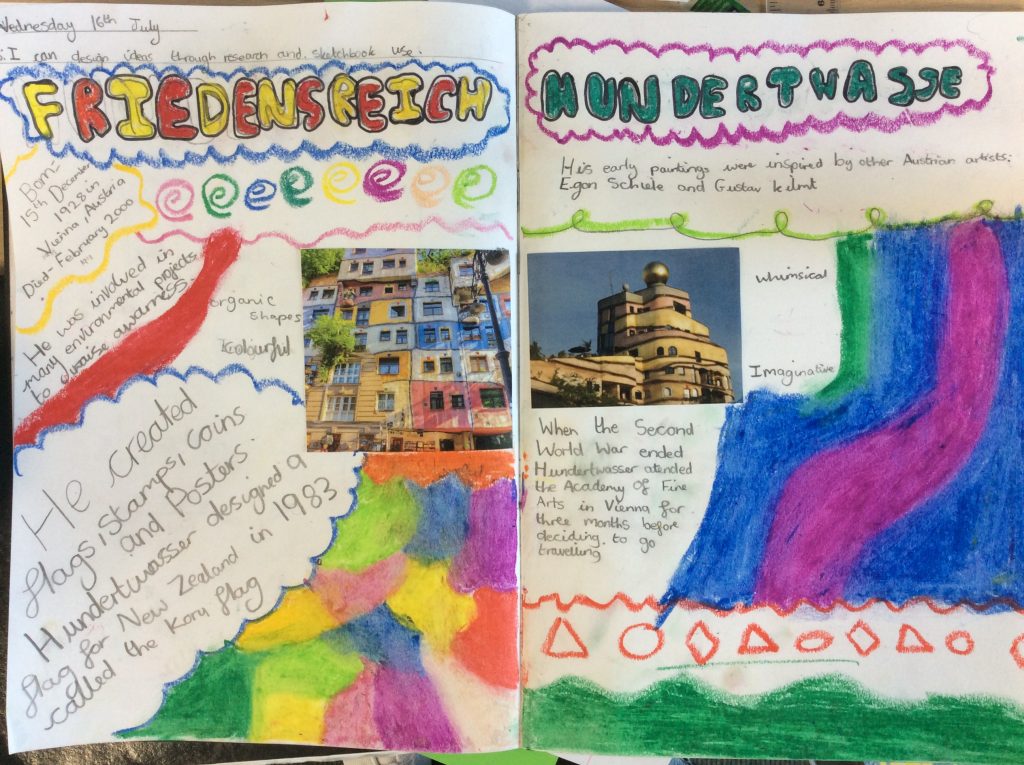 Wednesday 16th July
I can design ideas through research and sketchbook use.
FRIEDENSREICH
Born-
15th December
1928 in
Vienna Austria
Died- February 2000
He was involved in
many environmental projects
to raise awareness.
organic
shapes
colourful
He created
flags, stamps, coins
and Posters.
Hundertwasser designed a
flag for New Zealand in 1983
called the Koru flag
HUNDERTWASSE
His early paintings were inspired by other Austrian artists:
Egon Schiele and Gustav klimt
whimsical
Imaginative
When the Second
World War ended
Hundertwasser atended
the Academy of Fine
Arts in Vienna for
three months before
deciding to go
travelling